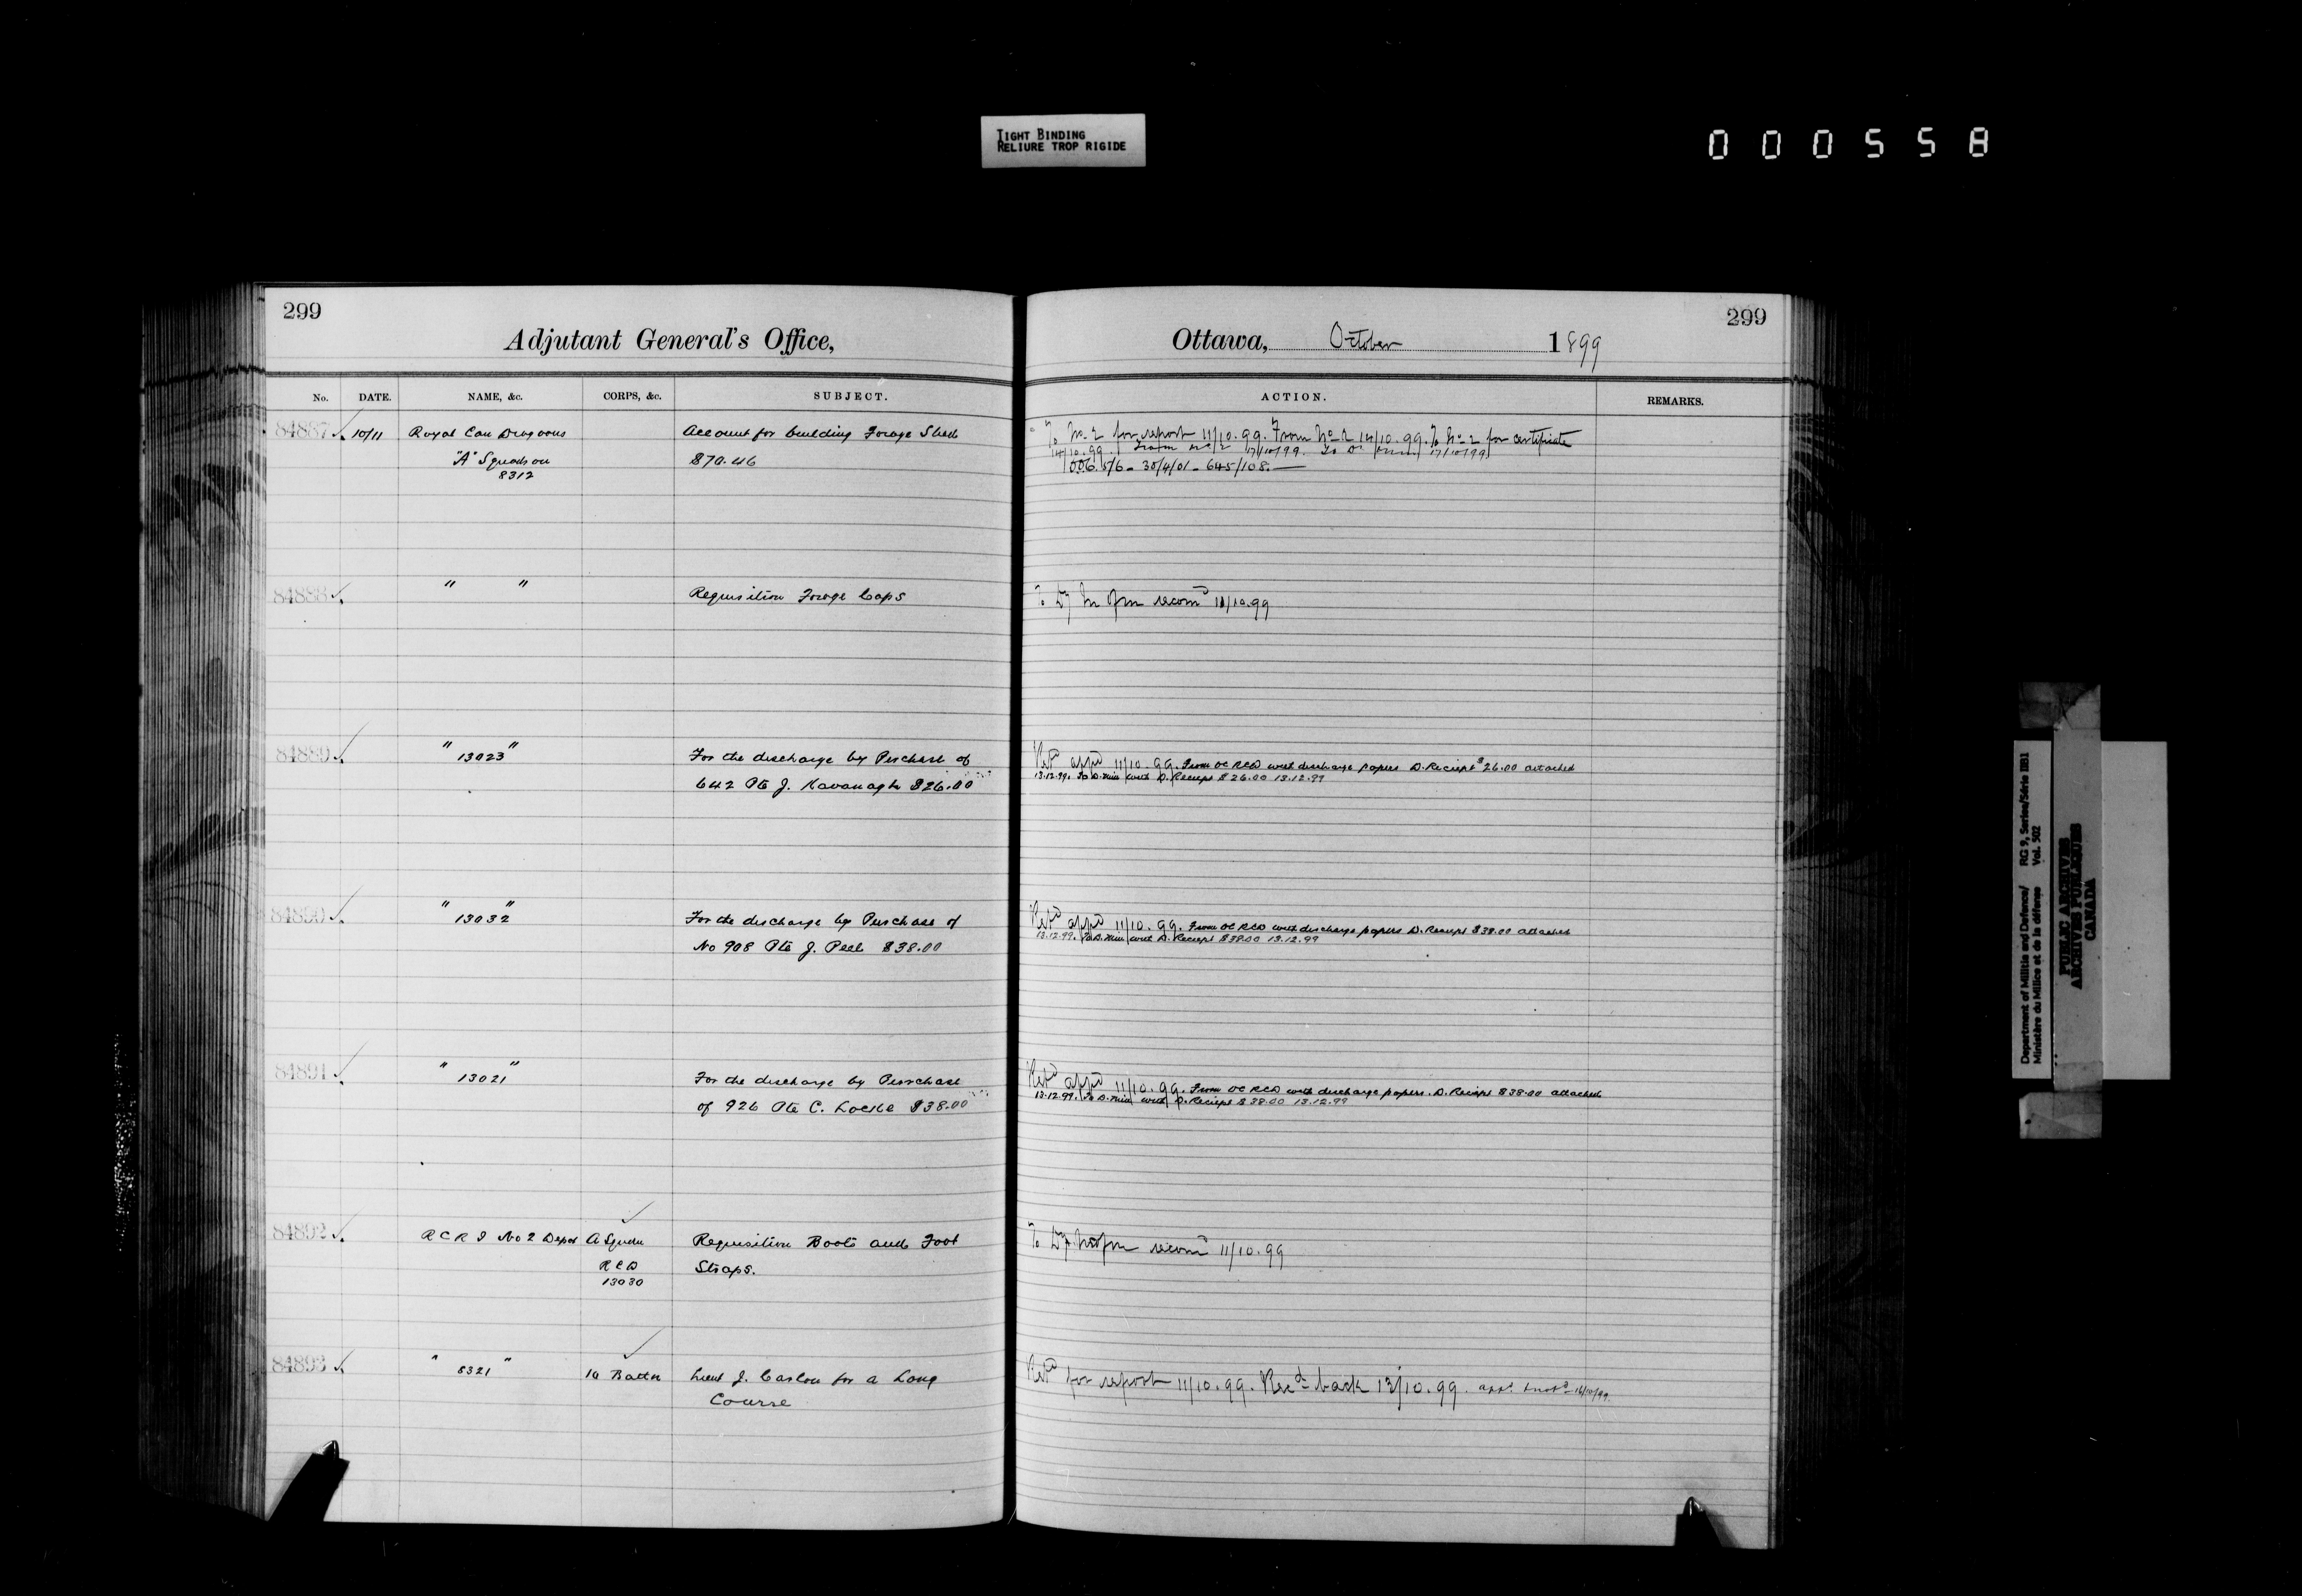 TIGHT BINDING
RELIURE TROP RIGIDE
000558
299
Adjutant General's Office,
No. DATE. NAME, &c. CORPS, &c. SUBJECT.
84887 10/11 Royal Can Dragoons Account for building Forage Shed
"A" Squadron $70.46
8312
84888 " " Requisition Forage Caps
84889 " 13023 " For the discharge by Purchase of
642 Pte J. Kavanagh $26.00
84890 " 13032 " For the discharge by Purchase of
No 908 Pte J. Peel $38.00
84891 " 13021 " For the discharge by Purchase
of 926 Pte C. Locke $38.00
84892 R C R I No 2 Depot A Squdn Requisition Boots and Foot
R C D Straps.
13030
84893 " 8321 " 10 Battn Lieut J. Caslou for a Long
Course
299
Ottawa, October 1899
ACTION. REMARKS.
To No. 2 for report 11/10.99. From No 2 14/10.99. To No 2 for certificate
14/10.99. From No 2 17/10/99. To D. 17/10/99
006.5/6 - 30/4/01 - 645/108.
To recomd 11/10.99
Retd appd 11/10.99. From OC RCD with discharge papers D. Reciept $26.00 attached
13.12.99. To D. Min with D. Reciept $26.00 13.12.99
Retd appd 11/10.99. From OC RCD with discharge papers D. Reciept $38.00 attached
13.12.99. To D. Min with D. Reciept $38.00 13.12.99
Retd appd 11/10.99. From OC RCD with discharge papers. D. Reciept $38.00 attached
13.12.99. To D. Min with D. Reciept $38.00 13.12.99
To recomd 11/10.99
Retd for report 11/10.99. Recd back 13/10.99. appd 16/10/99.
Department of Militia and Defence/ RG 9, Series/Série IIB1
Ministère du Milice et de la défense Vol. 502
PUBLIC ARCHIVES
ARCHIVES PUBLIQUES
CANADA